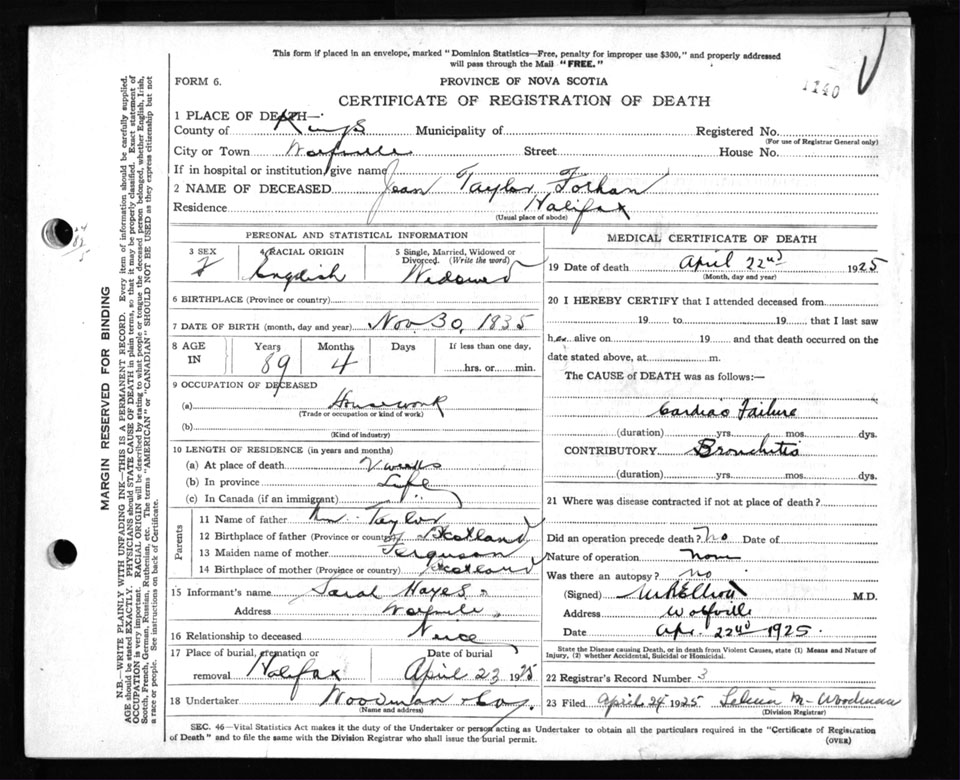 This form if placed in an envelope, marked "Dominion Statistics—Free, penalty for improper use $300," and properly addressed
will pass through the Mail "FREE."
1140
FORM 6.
PROVINCE OF NOVA SCOTIA
CERTIFICATE OF REGISTRATION OF DEATH
1 PLACE OF DEATH—
County of Kings Municipality of Registered No.
(For use of Registrar General only)
City or Town Wolfville Street House No.
If in hospital or institution, give name
2 NAME OF DECEASED Jean Taylor Forhan
Residence Halifax
(Usual place of abode)
PERSONAL AND STATISTICAL INFORMATION
3 SEX
F
4 RACIAL ORIGIN
English
5 Single, Married, Widowed or
Divorced. (Write the word)
Widowed
6 BIRTHPLACE (Province or country)
7 DATE OF BIRTH (month, day and year) Nov 30, 1835
8 AGE
IN
Years
Months
Days
If less than one day,
89
4
hrs. or min.
9 OCCUPATION OF DECEASED
(a) Housework
(Trade or occupation or kind of work)
(b)
(Kind of industry)
10 LENGTH OF RESIDENCE (in years and months)
(a) At place of death V weeks
(b) In province Life
(c) In Canada (if an immigrant) "
Parents
11 Name of father Wm. Taylor
12 Birthplace of father (Province or country) Scotland
13 Maiden name of mother Ferguson
14 Birthplace of mother (Province or country) Scotland
15 Informant's name Sarah Hayes
Address Wolfville
16 Relationship to deceased Neice
17 Place of burial, cremation or
removal Halifax
Date of burial
April 23 1925
18 Undertaker Woodman & Co.
(Name and address)
MEDICAL CERTIFICATE OF DEATH
19 Date of death April 22nd 1925
(Month, day and year)
20 I HEREBY CERTIFY that I attended deceased from
19 to 19 that I last saw
her alive on 19 and that death occurred on the
date stated above, at m.
The CAUSE of DEATH was as follows:—
Cardiac Failure
(duration) yrs. mos. dys.
CONTRIBUTORY Bronchitis
(duration) yrs. mos. dys.
21 Where was disease contracted if not at place of death?
Did an operation precede death? No Date of
Nature of operation None
Was there an autopsy? no
(Signed) M.R. Elliott M.D.
Address Wolfville
Date Apr. 22nd 1925.
State the Disease Causing Death, or in death from Violent Causes, state (1) Means and Nature of
Injury, (2) whether Accidental, Suicidal or Homicidal.
22 Registrar's Record Number 3
23 Filed April 24 1925 M. Woodman
(Division Registrar)
SEC. 46—Vital Statistics Act makes it the duty of the Undertaker or person acting as Undertaker to obtain all the particulars required in the "Certificate of Registration
of Death" and to file the same with the Division Registrar who shall issue the burial permit.
(OVER)
MARGIN RESERVED FOR BINDING
N.B.—WRITE PLAINLY WITH UNFADING INK—THIS IS A PERMANENT RECORD. Every item of information should be carefully supplied.
AGE should be stated EXACTLY. PHYSICIANS should STATE CAUSE OF DEATH in plain terms, so that it may be properly classified. Exact statement of
OCCUPATION is very important. RACIAL ORIGIN will be described by stating to what people or tongue the deceased person belonged, whether English, Irish,
Scotch, French, German, Russian, Ruthenian, etc. The terms "AMERICAN" or "CANADIAN" SHOULD NOT BE USED as they express citizenship but not
a race or people. See instructions on back of Certificate.